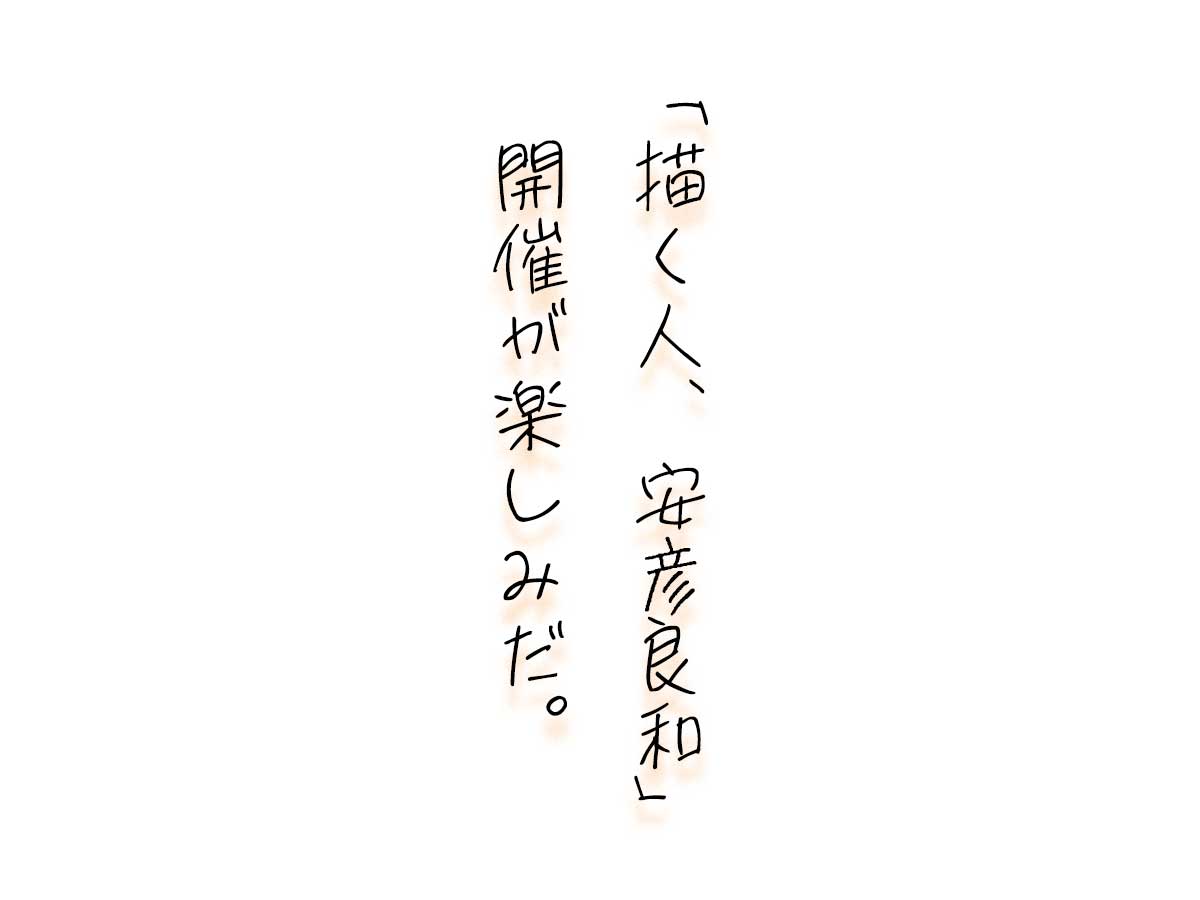 「描く人、安彦良和」
開催が楽しみだ。